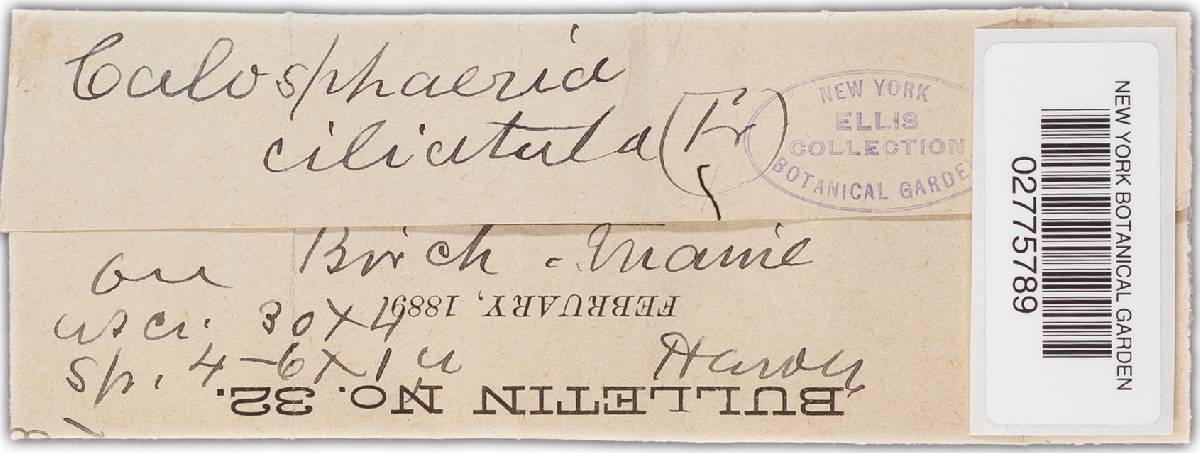 Calosphaeria
ciliatula (Fr)
NEW YORK
ELLIS
COLLECTION
BOTANICAL GARDE
on Birch. Maine
FEBRUARY, 1889.
asci. 30 x 4
sp. 4-6 x 1 u
Harvey
BULLETIN No. 32.
NEW YORK BOTANICAL GARDEN
02775789